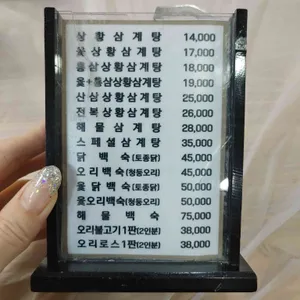 상황삼계탕 14,000
옻삼계탕 17,000
홀삼상황삼계탕 18,000
옻+홀삼상황삼계탕 19,000
산삼상황삼계탕 25,000
전복상황삼계탕 26,000
해물삼계탕 28,000
스페셜삼계탕 35,000
닭백숙(토종닭) 45,000
오리백숙(청둥오리) 45,000
옻닭백숙(토종닭) 50,000
옻오리백숙(청둥오리) 50,000
해물백숙 75,000
오리불고기1판(2인분) 38,000
오리로스1판(2인분) 38,000